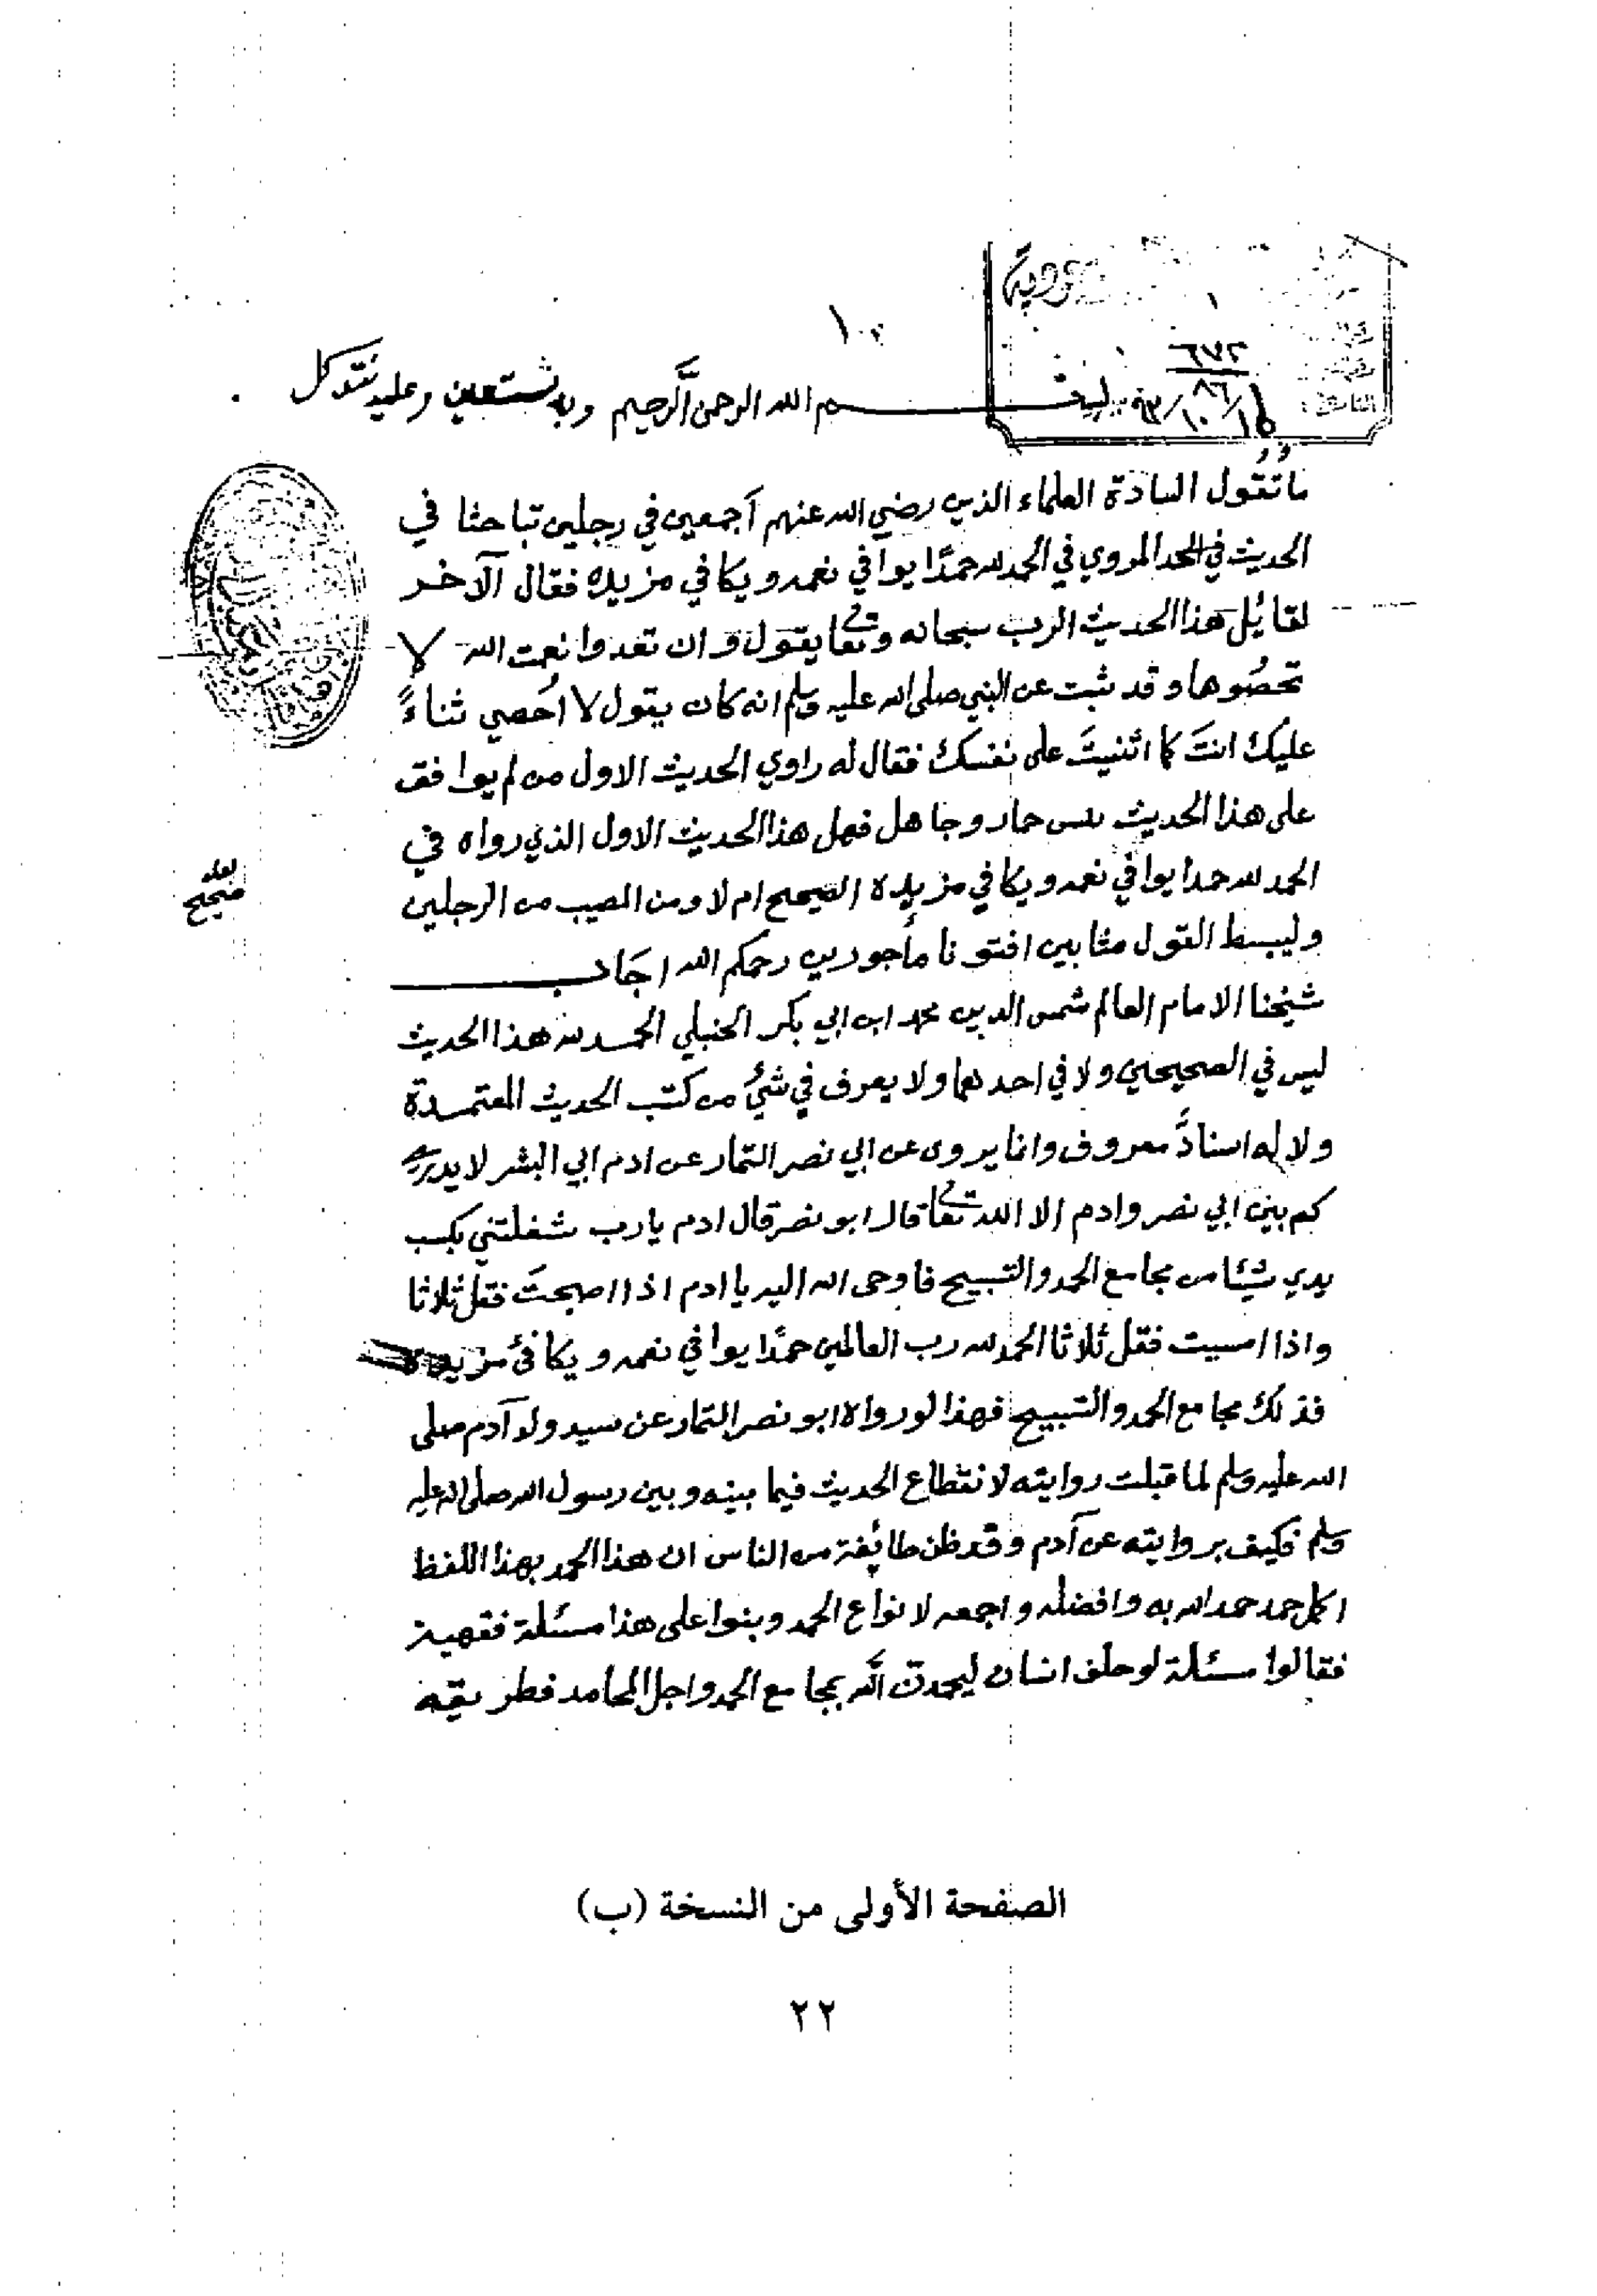 ١
٦٧٢
٨٦
بسم الله الرحمن الرحيم وبه نستعين وعليه نتوكل
ما تقول السادة العلماء الذين رضي الله عنهم أجمعين في رجلين تباحثا في
الحديث في الحد المروي في الحمد لله حمدًا يوافي نعمه ويكافي مزيده فقال آلاخر
لقايُل هذا الحديث الرب سبحانه وتعا يقول وان تعدوا نعمت الله لا
تحصُوها وقد ثبت عن النبي صلى الله عليه وسلم انه كان يقول لا اُحصي ثناءً
عليك انتَ كما اثنيتَ على نفسك فقال له راوي الحديث الاول من لم يوافق
على هذا الحديث حمار وجاهل فهل هذا الحديث الاول الذي رواه في
الحمد لله حمدا يوافي نعمه ويكافي مزيده الصحيح ام لا ومن المصيب من الرجلين
لعله
صحيح
وليبسط القول مثابين افتونا مأجورين رحمكم الله اجَاب
شيخنا الامام العالم شمس الدين محمد ابن ابي بكر الحنبلي الحمد لله هذا الحديث
ليس في الصحيحين ولا في احدهما ولا يعرف في شيُ من كتب الحديث المعتمدة
ولا له اسنادٌ معروف وانما يروى عن ابي نصر التمار عن ادم ابي البشر لا يدري
كم بين ابي نصر وادم الا الله تعا قال ابو نصر قال ادم يا رب شغلتني بكسب
يدي شيُا من مجامع الحمد والتسبيح فاوحى الله اليه يا ادم اذا اصبحتَ فقل ثلاثا
واذا امسيت فقل ثلاثا الحمد لله رب العالمين حمدًا يوافي نعمه ويكافئ مزيده
فذلك مجامع الحمد والتسبيح فهذا لو رواه ابو نصر التمار عن سيد ولد آدم صلى
الله عليه وسلم لما قبلت روايته لانقطاع الحديث فيما بينه وبين رسول الله صلى الله عليه
وسلم فكيف بروايته عن آدم وقد ظن طائفة من الناس ان هذا الحمد بهذا اللفظ
اكمل حمد حمد الله به وافضله واجمعه لانواع الحمد وبنوا على هذا مسئلة فقهية
فقالوا مسئلة لو حلف انسان ليحمدن الله بمجامع الحمد واجل المحامد فطريقه
الصفحة الأولى من النسخة (ب)
٢٢